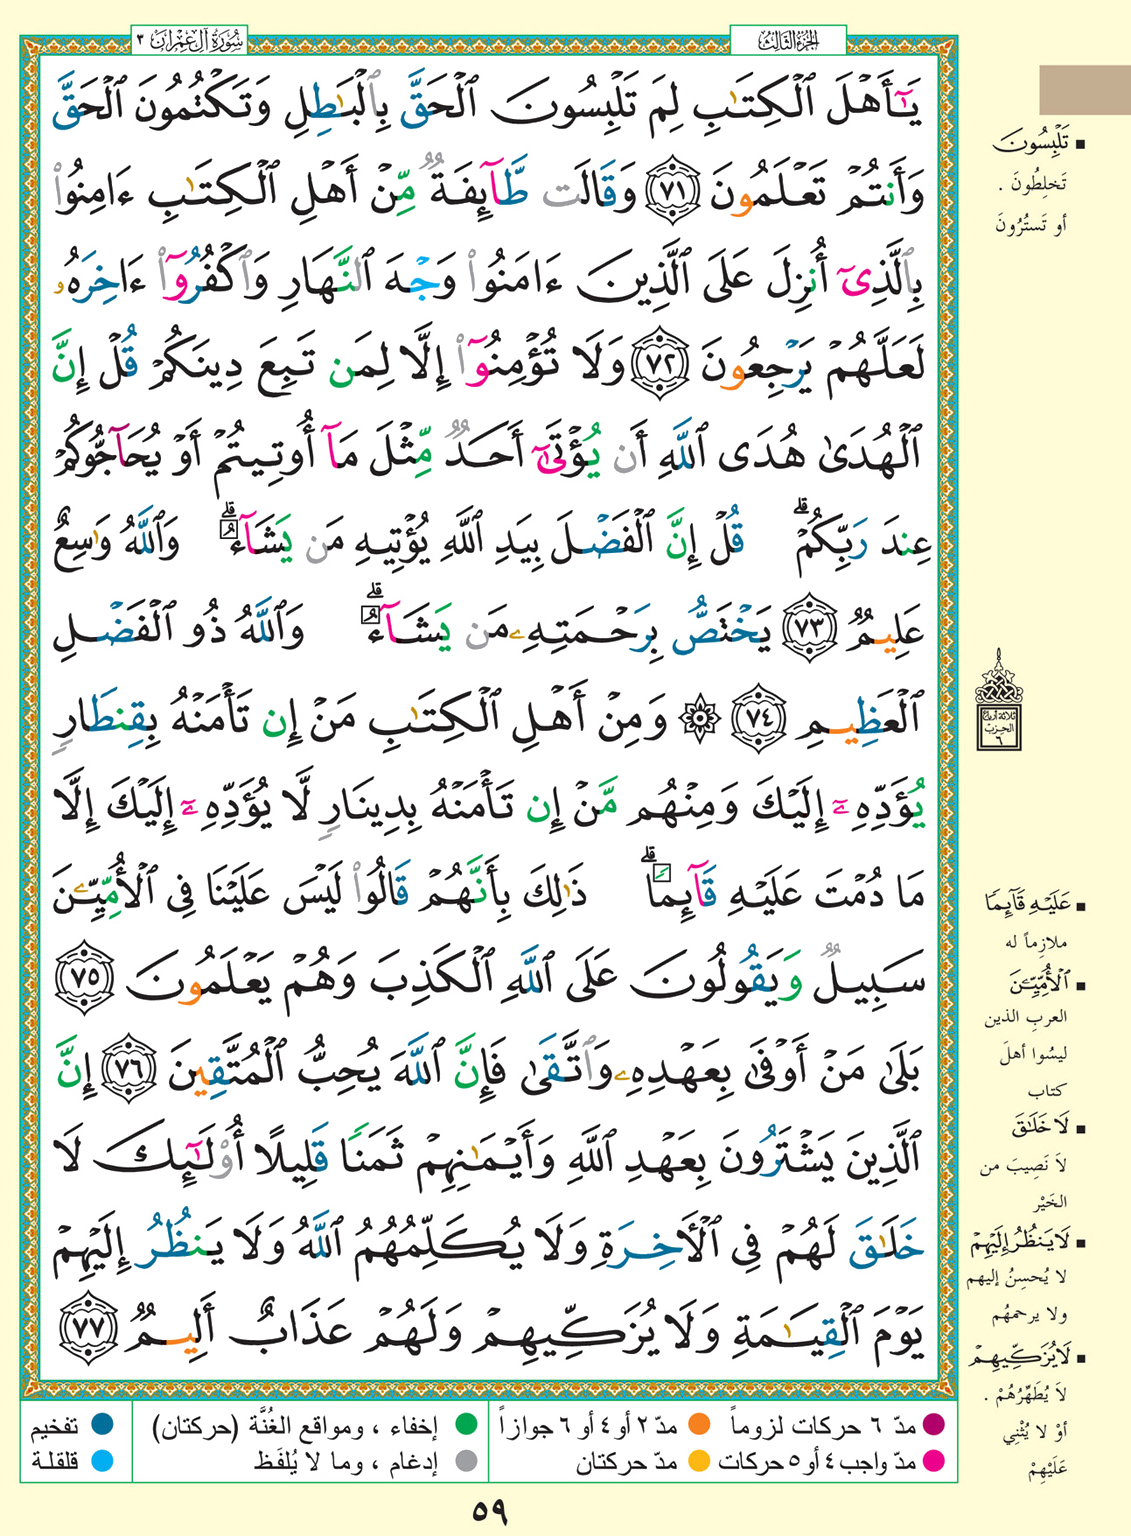 الجزء الثالث
سورة آل عمران ٣
يَـٰٓأَهْلَ ٱلْكِتَـٰبِ لِمَ تَلْبِسُونَ ٱلْحَقَّ بِٱلْبَـٰطِلِ وَتَكْتُمُونَ ٱلْحَقَّ
وَأَنتُمْ تَعْلَمُونَ ٧١ وَقَالَت طَّآئِفَةٌ مِّنْ أَهْلِ ٱلْكِتَـٰبِ ءَامِنُوا۟
بِٱلَّذِىٓ أُنزِلَ عَلَى ٱلَّذِينَ ءَامَنُوا۟ وَجْهَ ٱلنَّهَارِ وَٱكْفُرُوٓا۟ ءَاخِرَهُۥ
لَعَلَّهُمْ يَرْجِعُونَ ٧٢ وَلَا تُؤْمِنُوٓا۟ إِلَّا لِمَن تَبِعَ دِينَكُمْ قُلْ إِنَّ
ٱلْهُدَىٰ هُدَى ٱللَّهِ أَن يُؤْتَىٰٓ أَحَدٌ مِّثْلَ مَآ أُوتِيتُمْ أَوْ يُحَآجُّوكُمْ
عِندَ رَبِّكُمْ ۗ قُلْ إِنَّ ٱلْفَضْلَ بِيَدِ ٱللَّهِ يُؤْتِيهِ مَن يَشَآءُ ۗ وَٱللَّهُ وَٰسِعٌ
عَلِيمٌ ٧٣ يَخْتَصُّ بِرَحْمَتِهِۦ مَن يَشَآءُ ۗ وَٱللَّهُ ذُو ٱلْفَضْلِ
ٱلْعَظِيمِ ٧٤ ۞ وَمِنْ أَهْلِ ٱلْكِتَـٰبِ مَنْ إِن تَأْمَنْهُ بِقِنطَارٍ
يُؤَدِّهِۦٓ إِلَيْكَ وَمِنْهُم مَّنْ إِن تَأْمَنْهُ بِدِينَارٍ لَّا يُؤَدِّهِۦٓ إِلَيْكَ إِلَّا
مَا دُمْتَ عَلَيْهِ قَآئِمًا ۗ ذَٰلِكَ بِأَنَّهُمْ قَالُوا۟ لَيْسَ عَلَيْنَا فِى ٱلْأُمِّيِّـۧنَ
سَبِيلٌ وَيَقُولُونَ عَلَى ٱللَّهِ ٱلْكَذِبَ وَهُمْ يَعْلَمُونَ ٧٥
بَلَىٰ مَنْ أَوْفَىٰ بِعَهْدِهِۦ وَٱتَّقَىٰ فَإِنَّ ٱللَّهَ يُحِبُّ ٱلْمُتَّقِينَ ٧٦ إِنَّ
ٱلَّذِينَ يَشْتَرُونَ بِعَهْدِ ٱللَّهِ وَأَيْمَـٰنِهِمْ ثَمَنًا قَلِيلًا أُو۟لَـٰٓئِكَ لَا
خَلَـٰقَ لَهُمْ فِى ٱلْـَٔاخِرَةِ وَلَا يُكَلِّمُهُمُ ٱللَّهُ وَلَا يَنظُرُ إِلَيْهِمْ
يَوْمَ ٱلْقِيَـٰمَةِ وَلَا يُزَكِّيهِمْ وَلَهُمْ عَذَابٌ أَلِيمٌ ٧٧
تَلْبِسُونَ
تَخلِطُونَ .
أو تَستُرُونَ
ثلاثة أرباع
الحزب
٦
عَلَيْهِ قَآئِمًا
ملازِماً له
ٱلْأُمِّيِّـۧنَ
العربِ الذين
ليسُوا أهلَ
كتاب
لَا خَلَـٰقَ
لاَ نَصِيبَ من
الخَيْر
لَا يَنظُرُ إِلَيْهِمْ
لا يُحسِنُ إليهم
ولا يرحمهُم
لَا يُزَكِّيهِمْ
لاَ يُطَهِّرُهُمْ .
أوْ لا يُثْنِي
عَلَيْهِمْ
مدّ ٦ حركات لزوماً
مدّ ٢ أو ٤ أو ٦ جوازاً
إخفاء ، ومواقع الغُنَّة (حركتان)
تفخيم
مدّ واجب ٤ أو ٥ حركات
مدّ حركتان
إدغام ، وما لا يُلفَظ
قلقلة
٥٩